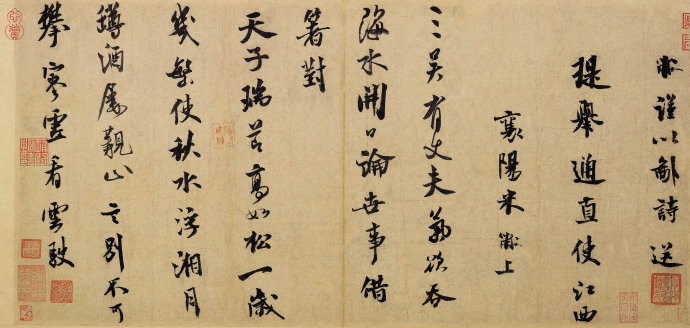 黻謹以鄙詩送
提舉通直使江西
襄陽米黻上
三吳有丈夫氣欲吞
海水開口論世事借
箸對
天子瑞節高如松一歲
幾繁使秋水浮湘月
罇酒屢觀止言別不可
攀寥雲看雲駛